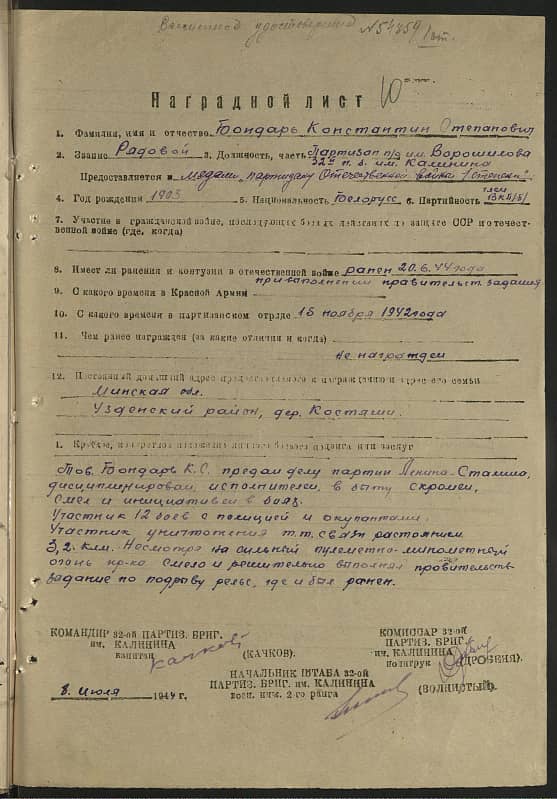 удостверения №54859 1 ст.
10
Наградной лист
1. Фамилия, имя и отчество Бондарь Константин Степанович
2. Звание Радовой 3. Должность, часть Партизан п/о им. Ворошилова
32й п. б. им. Калинина
Представляется к Медали „партизану Отечественной войны I степени“.
4. Год рождения 1903 5. Национальность Белорусс 6. Партийность член ВКП/б/
7. Участие в гражданской войне, последующих боевых действиях по защите ССР и отечест-
венной войне (где, когда)
8. Имеет ли ранения и контузии в отечественной войне ранен 20.6.44 года
при выполнении правительст. задания
9. С какого времени в Красной Армии
10. С какого времени в партизанском отряде 15 ноября 1942 года
11. Чем ранее награжден (за какие отличия и когда)
не награжден
12. Постоянный домашний адрес представляемого к награждению и адрес его семьи
Минская обл.
Узденский район, дер. Костяши.
1. Краткое, конкретное изложение личного боевого подвига или заслуг
Тов. Бондарь К.С. предан делу партии Ленина-Сталина,
дисциплинирован, исполнителен, в быту скромен,
смел и инициативен в боях.
Участник 12 боев с полицией и окупантами.
Участник уничтожения т.т. связи растоянием
3,2 клм. Несмотря на сильный пулеметно-минометный
огонь пр-ка. Смело и решительно выполнял правительств
задание по подрыву рельс, где и был ранен.
КОМАНДИР 32-ой ПАРТИЗ. БРИГ.
им. КАЛИНИНА
капитан Качков (КАЧКОВ).
КОМИССАР 32-ой
ПАРТИЗ. БРИГ.
им. КАЛИНИНА
политрук (ДРОБЕНЯ).
НАЧАЛЬНИК ШТАБА 32-ой
ПАРТИЗ. БРИГ. им. КАЛИНИНА
воен. инж. 2-го ранга (ВОЛНИСТЫЙ).
8 Июля 1944 г.